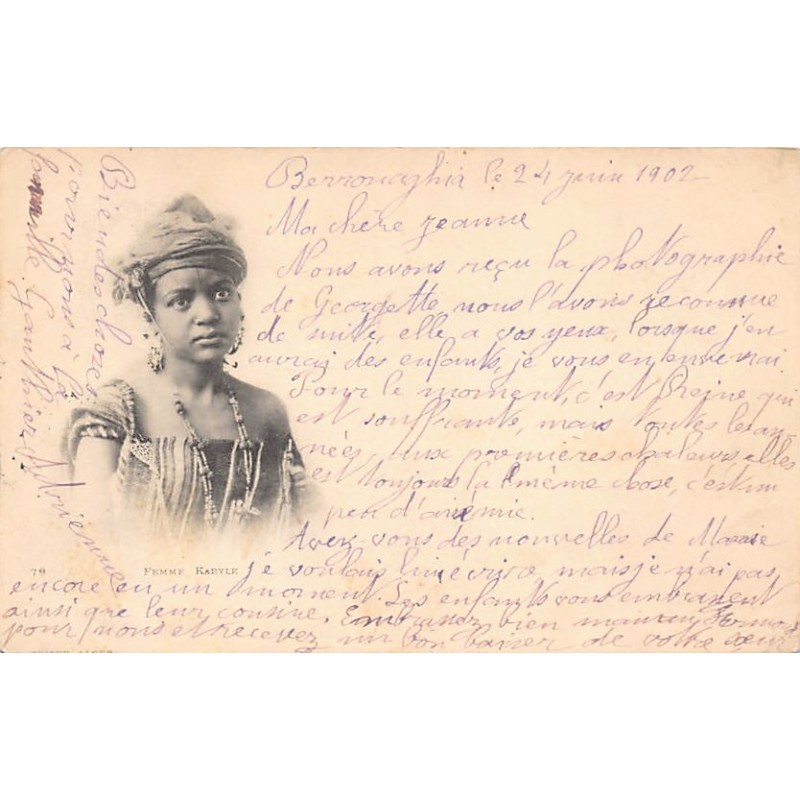 Berrouaghia le 24 juin 1902
Ma chère Jeanne
Nous avons reçu la photographie
de Georgette nous l'avons reconnue
de suite, elle a vos yeux, lorsque j'en
aurai des enfants, je vous en enverrai.
Pour le moment, c'est Reine qui
est souffrante, mais toutes les an-
nées, aux premières chaleurs elles
est toujours la même chose, c'est un
peu d'anémie.
Avez-vous des nouvelles de Marie
je voulais lui écrire, mais je n'ai pas
encore eu un moment. Les enfants vous embrassent
ainsi que leur cousine. Embrassez bien maman
pour nous et recevez un bon baiser de votre sœur
Bien des choses
pour nous à la
famille Gauthier
78
Femme Kabyle